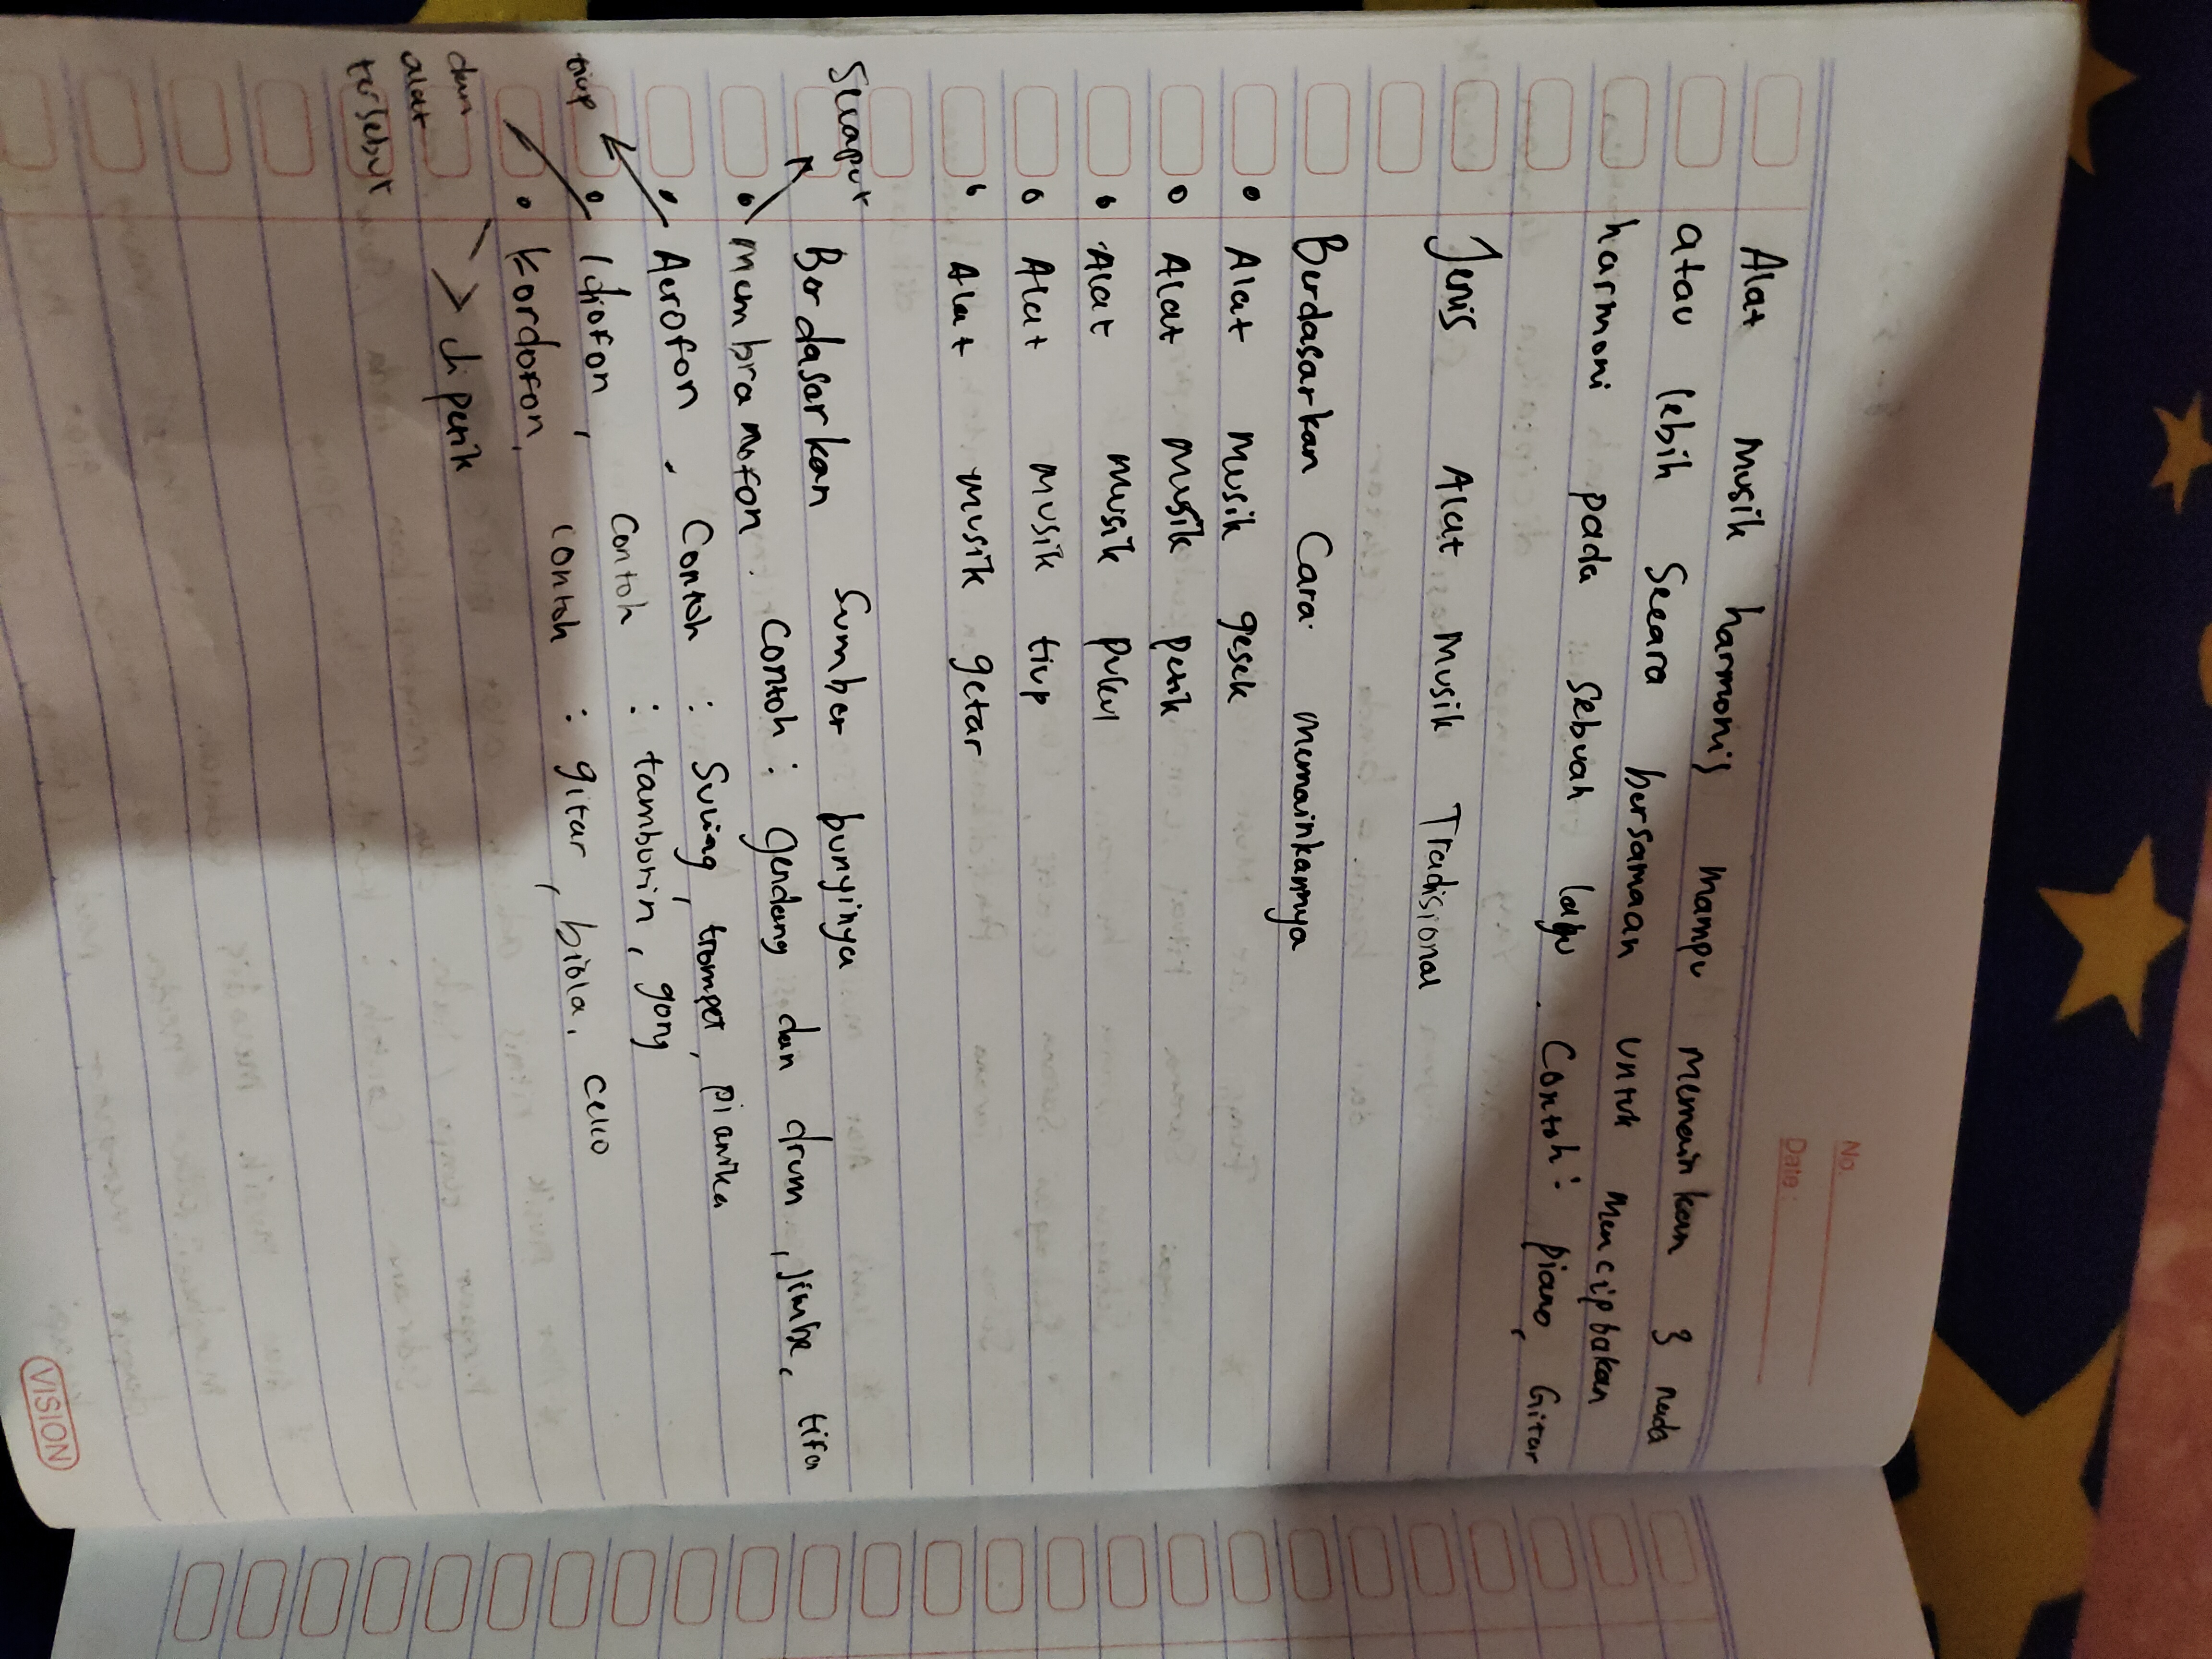 No.
Date:
Alat musik harmonis mampu memainkan 3 nada
atau lebih secara bersamaan untuk menciptakan
harmoni pada sebuah lagu. Contoh: piano, Gitar
Jenis Alat Musik Tradisional
Berdasarkan Cara memainkannya
• Alat musik gesek
• Alat musik petik
• Alat musik pukul
• Alat musik tiup
• Alat musik getar
Selaput
Berdasarkan Sumber bunyinya
• Membranofon. Contoh: Gendang dan drum, jimbe, tifa
• Aerofon, Contoh: Suling, trompet, pianika
tiup
• Idiofon, Contoh: tamburin, gong
• Kordofon, contoh: gitar, biola, cello
dan
alat
tersebut
> dipetik
VISION